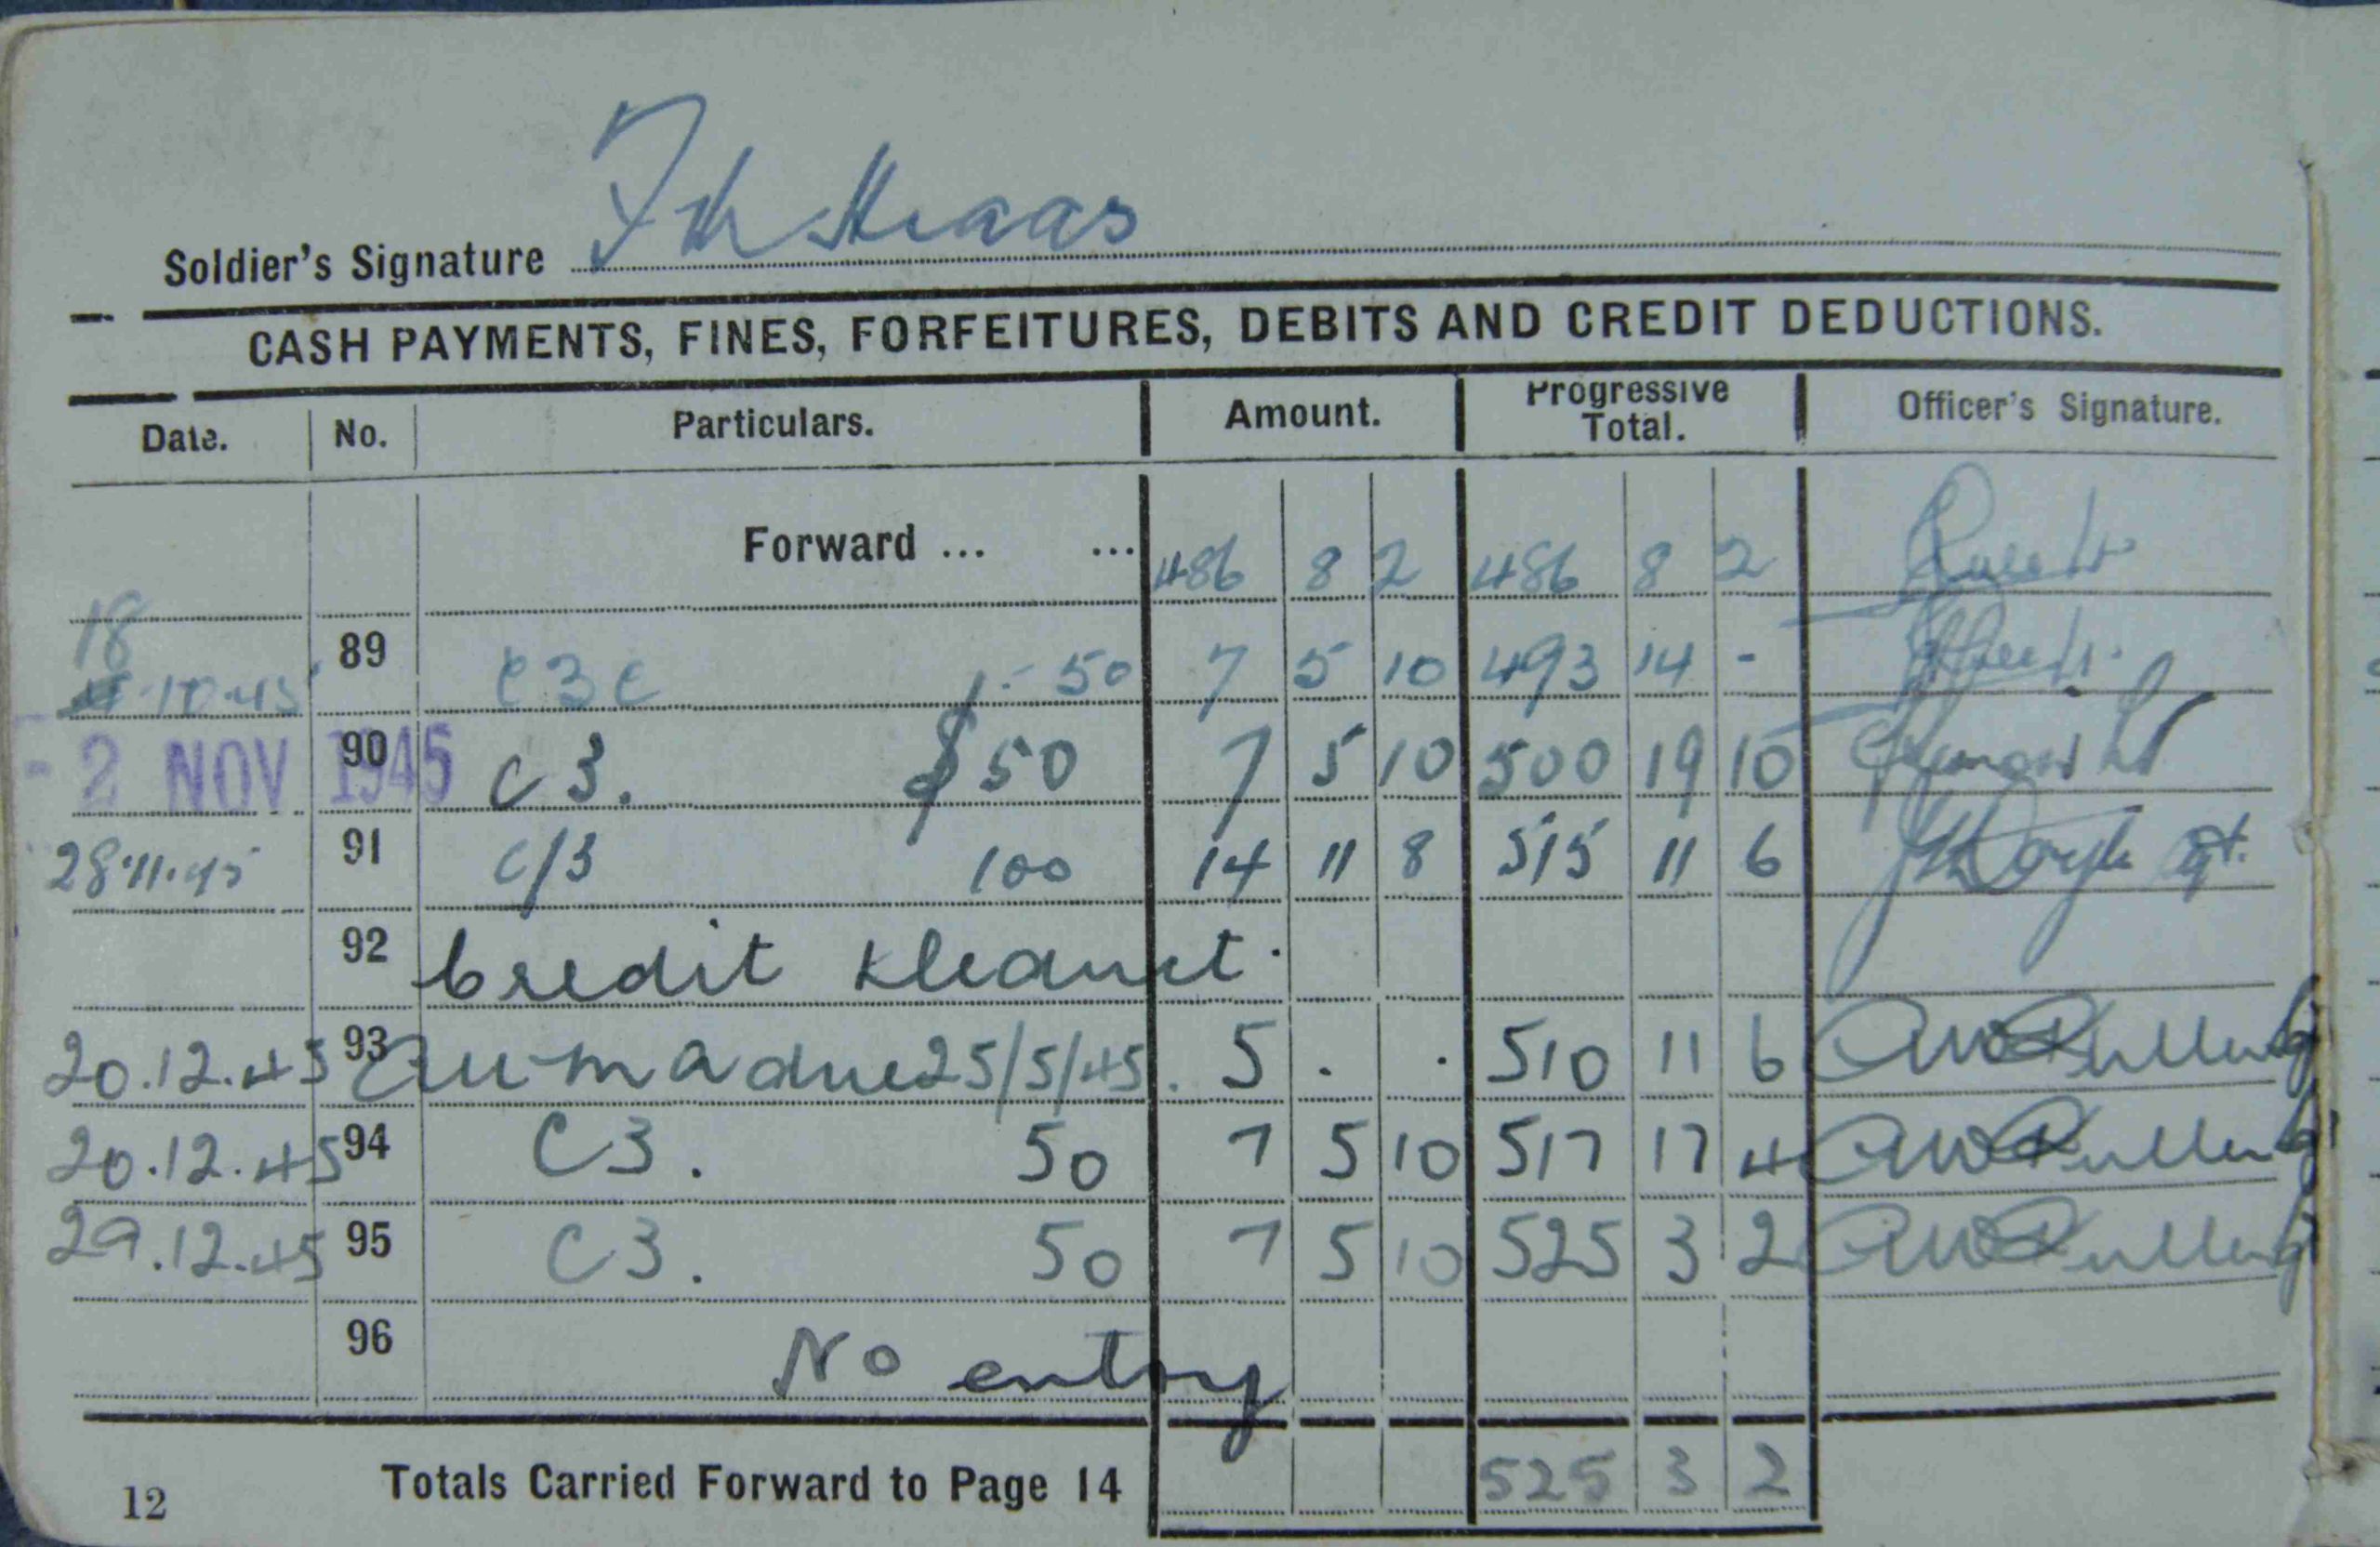 Soldier's Signature
CASH PAYMENTS, FINES, FORFEITURES, DEBITS AND CREDIT DEDUCTIONS.
Date. No. Particulars. Amount. Progressive Total. Officer's Signature.
Forward ... ... 486 8 2 486 8 2
18
10.45 89 C3C 50 7 5 10 493 14 -
- 2 NOV 1945 90 C3. $50 7 5 10 500 19 10
28.11.45 91 C/3 100 14 11 8 515 11 6
92 Credit
20.12.45 93 25/5/45. 5 . . 510 11 6
20.12.45 94 C3. 50 7 5 10 517 17 4
29.12.45 95 C3. 50 7 5 10 525 3 2
96 No entry
Totals Carried Forward to Page 14 525 3 2
12